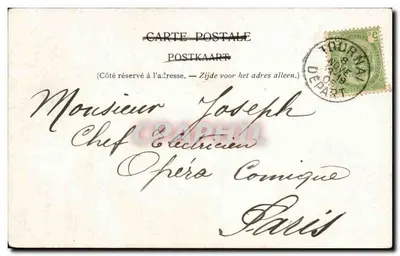 CARTE POSTALE
POSTKAART
(Côté réservé à l'adresse. — Zijde voor het adres alleen.)
TOURNAI
8
DÉPART
5
Monsieur Joseph
Chef Electricien
Opéra Comique
Paris